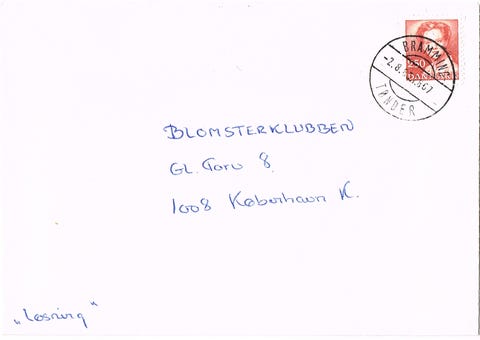 BRAMMIN
TØNDER
BLOMSTERKLUBBEN
GL. Torv 8.
1008 København K.
"Løsning"